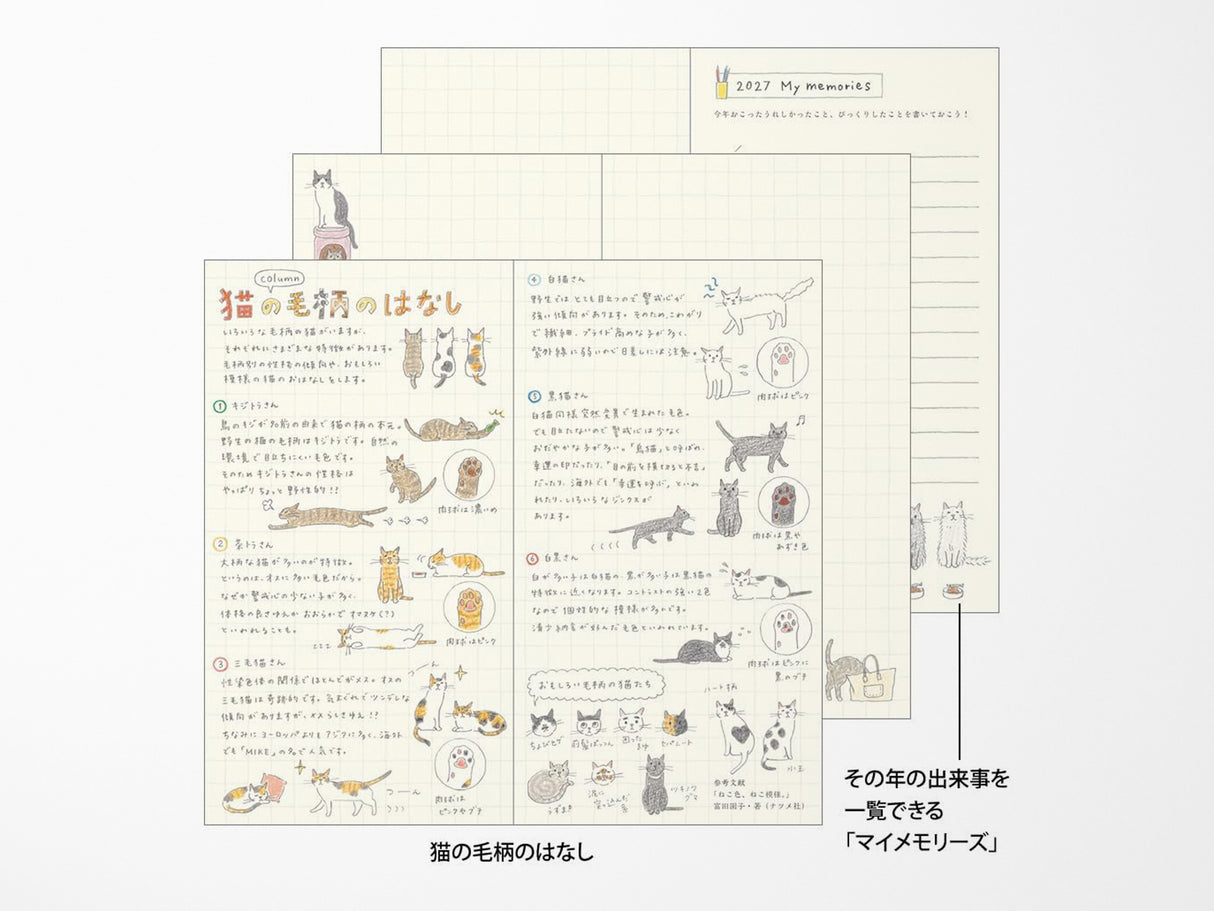 2027 My memories
今年おこったうれしかったこと、びっくりしたことを書いておこう！
column
猫の毛柄のはなし
いろいろな毛柄の猫がいますが、
それぞれにさまざまな特徴があります。
毛柄別の性格の傾向や、おもしろい
模様の猫のおはなしをします。
1 キジトラさん
鳥のキジが名前の由来で猫の柄の本元。
野生の猫の毛柄はキジトラです。自然の
環境で目立ちにくい毛色です。
そのためキジトラさんの性格は
やっぱりちょっと野性的!!
肉球は濃いめ
2 茶トラさん
大柄な猫が多いのが特徴。
というのは、オスに多い毛色だから。
なぜか警戒心の少ない子が多く、
体格の良さゆえかおおらかでオマヌケ(?)
といわれることも。
肉球はピンク
3 三毛猫さん
性染色体の関係でほとんどがメス。オスの
三毛猫は奇跡的です。気まぐれでツンデレな
傾向がありますが、メスらしさゆえ!?
ちなみにヨーロッパよりもアジアに多く、海外
でも「MIKE」の名で人気です。
つーん
つーん
肉球は
ピンクやブチ
4 白猫さん
野生ではとても目立つので警戒心が
強い傾向があります。そのため、こわがり
で繊細、プライド高めな子が多く、
紫外線に弱いので日差しには注意。
肉球はピンク
5 黒猫さん
白猫同様突然変異で生まれた毛色。
でも目立たないので警戒心は少なく
おだやかな子が多い。「烏猫」と呼ばれ、
幸運の印だったり、「目の前を横切ると不吉」
だったり、海外でも「幸運を呼ぶ」といわ
れたり、いろいろなジンクスが
あります。
肉球は黒や
あずき色
6 白黒さん
白が多い子は白猫の、黒が多い子は黒猫の
特徴に近くなります。コントラストの強い2色
なので個性的な模様が多いです。
清少納言が好んだ毛色といわれています。
肉球はピンクに
黒のブチ
おもしろい毛柄の猫たち
ちょびヒゲ
前髪ぱっつん
困った
まゆ
セパレート
ハート柄
うずまき
泥に
突っ込んだ
系
ツキノワ
グマ
水玉
参考文献
「ねこ色、ねこ模様。」
富田園子・著（ナツメ社）
猫の毛柄のはなし
その年の出来事を
一覧できる
「マイメモリーズ」